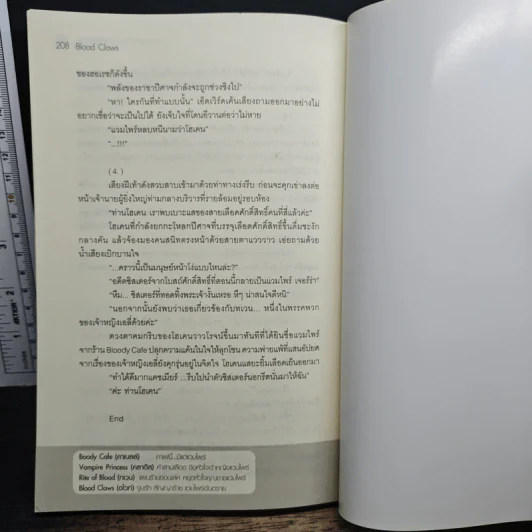 208 Blood Claws
ของฮอเรซก็ดังขึ้น
"พลังของราชาปีศาจกำลังจะถูกช่วงชิงไป"
"หา! ใครกันที่ทำแบบนั้น" เอ็ดเวิร์ดเค้นเสียงถามออกมาอย่างไม่
อยากเชื่อว่าจะเป็นไปได้ ยังเจ็บใจที่โดนอีวานต่อว่าไม่หาย
"แวมไพร์หลบหนีนามว่าโฮเคน"
"...!!!"
(4.)
เสียงฝีเท้าดังสวบสาบเข้ามาด้วยท่าทางเร่งรีบ ก่อนจะคุกเข่าลงต่อ
หน้าเจ้านายผู้ยิ่งใหญ่ท่ามกลางบริวารที่รายล้อมอยู่รอบห้อง
"ท่านโฮเคน เราพบเบาะแสของสายเลือดศักดิ์สิทธิ์คนที่สี่แล้วค่ะ"
โฮเคนที่กำลังยกกะโหลกปีศาจที่บรรจุเลือดศักดิ์สิทธิ์ขึ้นดื่มชะงัก
กลางคัน แล้วจ้องมองคนสนิทตรงหน้าด้วยสายตาแวววาว เอ่ยถามด้วย
น้ำเสียงเบิกบานใจ
"...คราวนี้เป็นมนุษย์หน้าโง่แบบไหนล่ะ?"
"อดีตซิสเตอร์จากโบสถ์ศักดิ์สิทธิ์ที่ตอนนี้กลายเป็นแวมไพร์ เจอร์ร่า"
"หึม... ซิสเตอร์ที่ทอดทิ้งพระเจ้างั้นเหรอ หึๆ น่าสนใจดีหนิ"
"นอกจากนั้นยังพบว่าเธอเกี่ยวข้องกับทเวน... หนึ่งในพรรคพวก
ของเจ้าหญิงเอลี่ด้วยค่ะ"
ดวงตาคมกริบของโฮเคนวาวโรจน์ขึ้นมาทันทีที่ได้ยินชื่อแวมไพร์
จากร้าน Bloody Cafe ปลุกความแค้นในใจให้ลุกโชน ความพ่ายแพ้ที่แสนอัปยศ
จากเรื่องของเจ้าหญิงเอลี่ยังคุกรุ่นอยู่ในจิตใจ โฮเคนแสยะยิ้มเลือดเย็นออกมา
"ทำได้ดีมากแคชเมียร์ ...รีบไปนำตัวซิสเตอร์นอกรีตนั่นมาให้ฉัน"
"ค่ะ ท่านโฮเคน"
End
Boody Cafe (คาเบลล์) คาเฟ่นี้...มีแต่แวมไพร์
Vampire Princess (คลาดิส) คำสาปเลือด ชิงหัวใจเจ้าหญิงแวมไพร์
Rite of Blood (ทเวน)
Blood Claws (อีวาท)